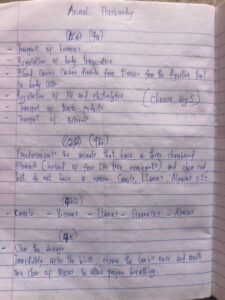 Animal Husbandry
(4a)
- Transport of hormones
- Regulation of body temperature
- Blood carries carbon dioxide from tissues from the digestive tract
to body cells
- Regulation of PH and electrolytes
- Transport of waste products (choose any 5)
- Transport of nutrients
(4bi)
Pseudoruminants are animals that have a three-chambered
stomach (instead of four like true ruminants) and chew cud
but do not have a rumen. Camels, Llamas, Alpacas e.t.c
(4bii)
- Camels - Vicunas - Llamas - Guanacos - Alpacas
(4c)
- Clean the airways
Immediately after the birth, ensure the nose and mouth
are clear of mucus to allow proper breathing